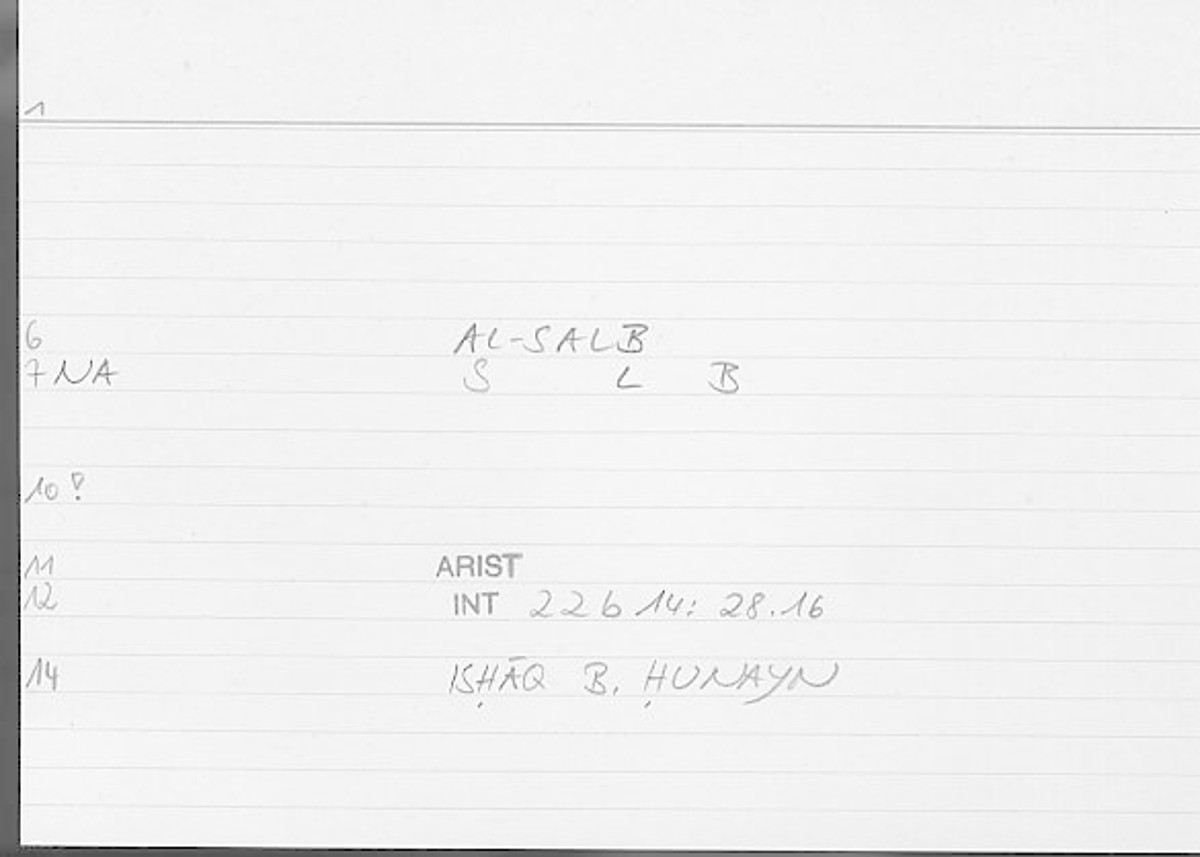 1
6 AL-SALB
7 NA S L B
10 !
11 ARIST
12 INT 22b14: 28.16
14 ISḤĀQ B. ḤUNAYN